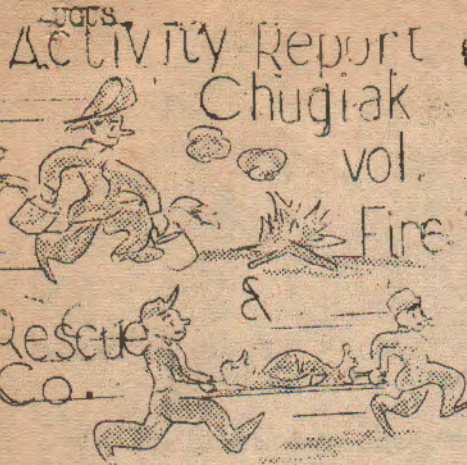 Activity Report
Chugiak
vol.
Fire
&
Rescue
Co.